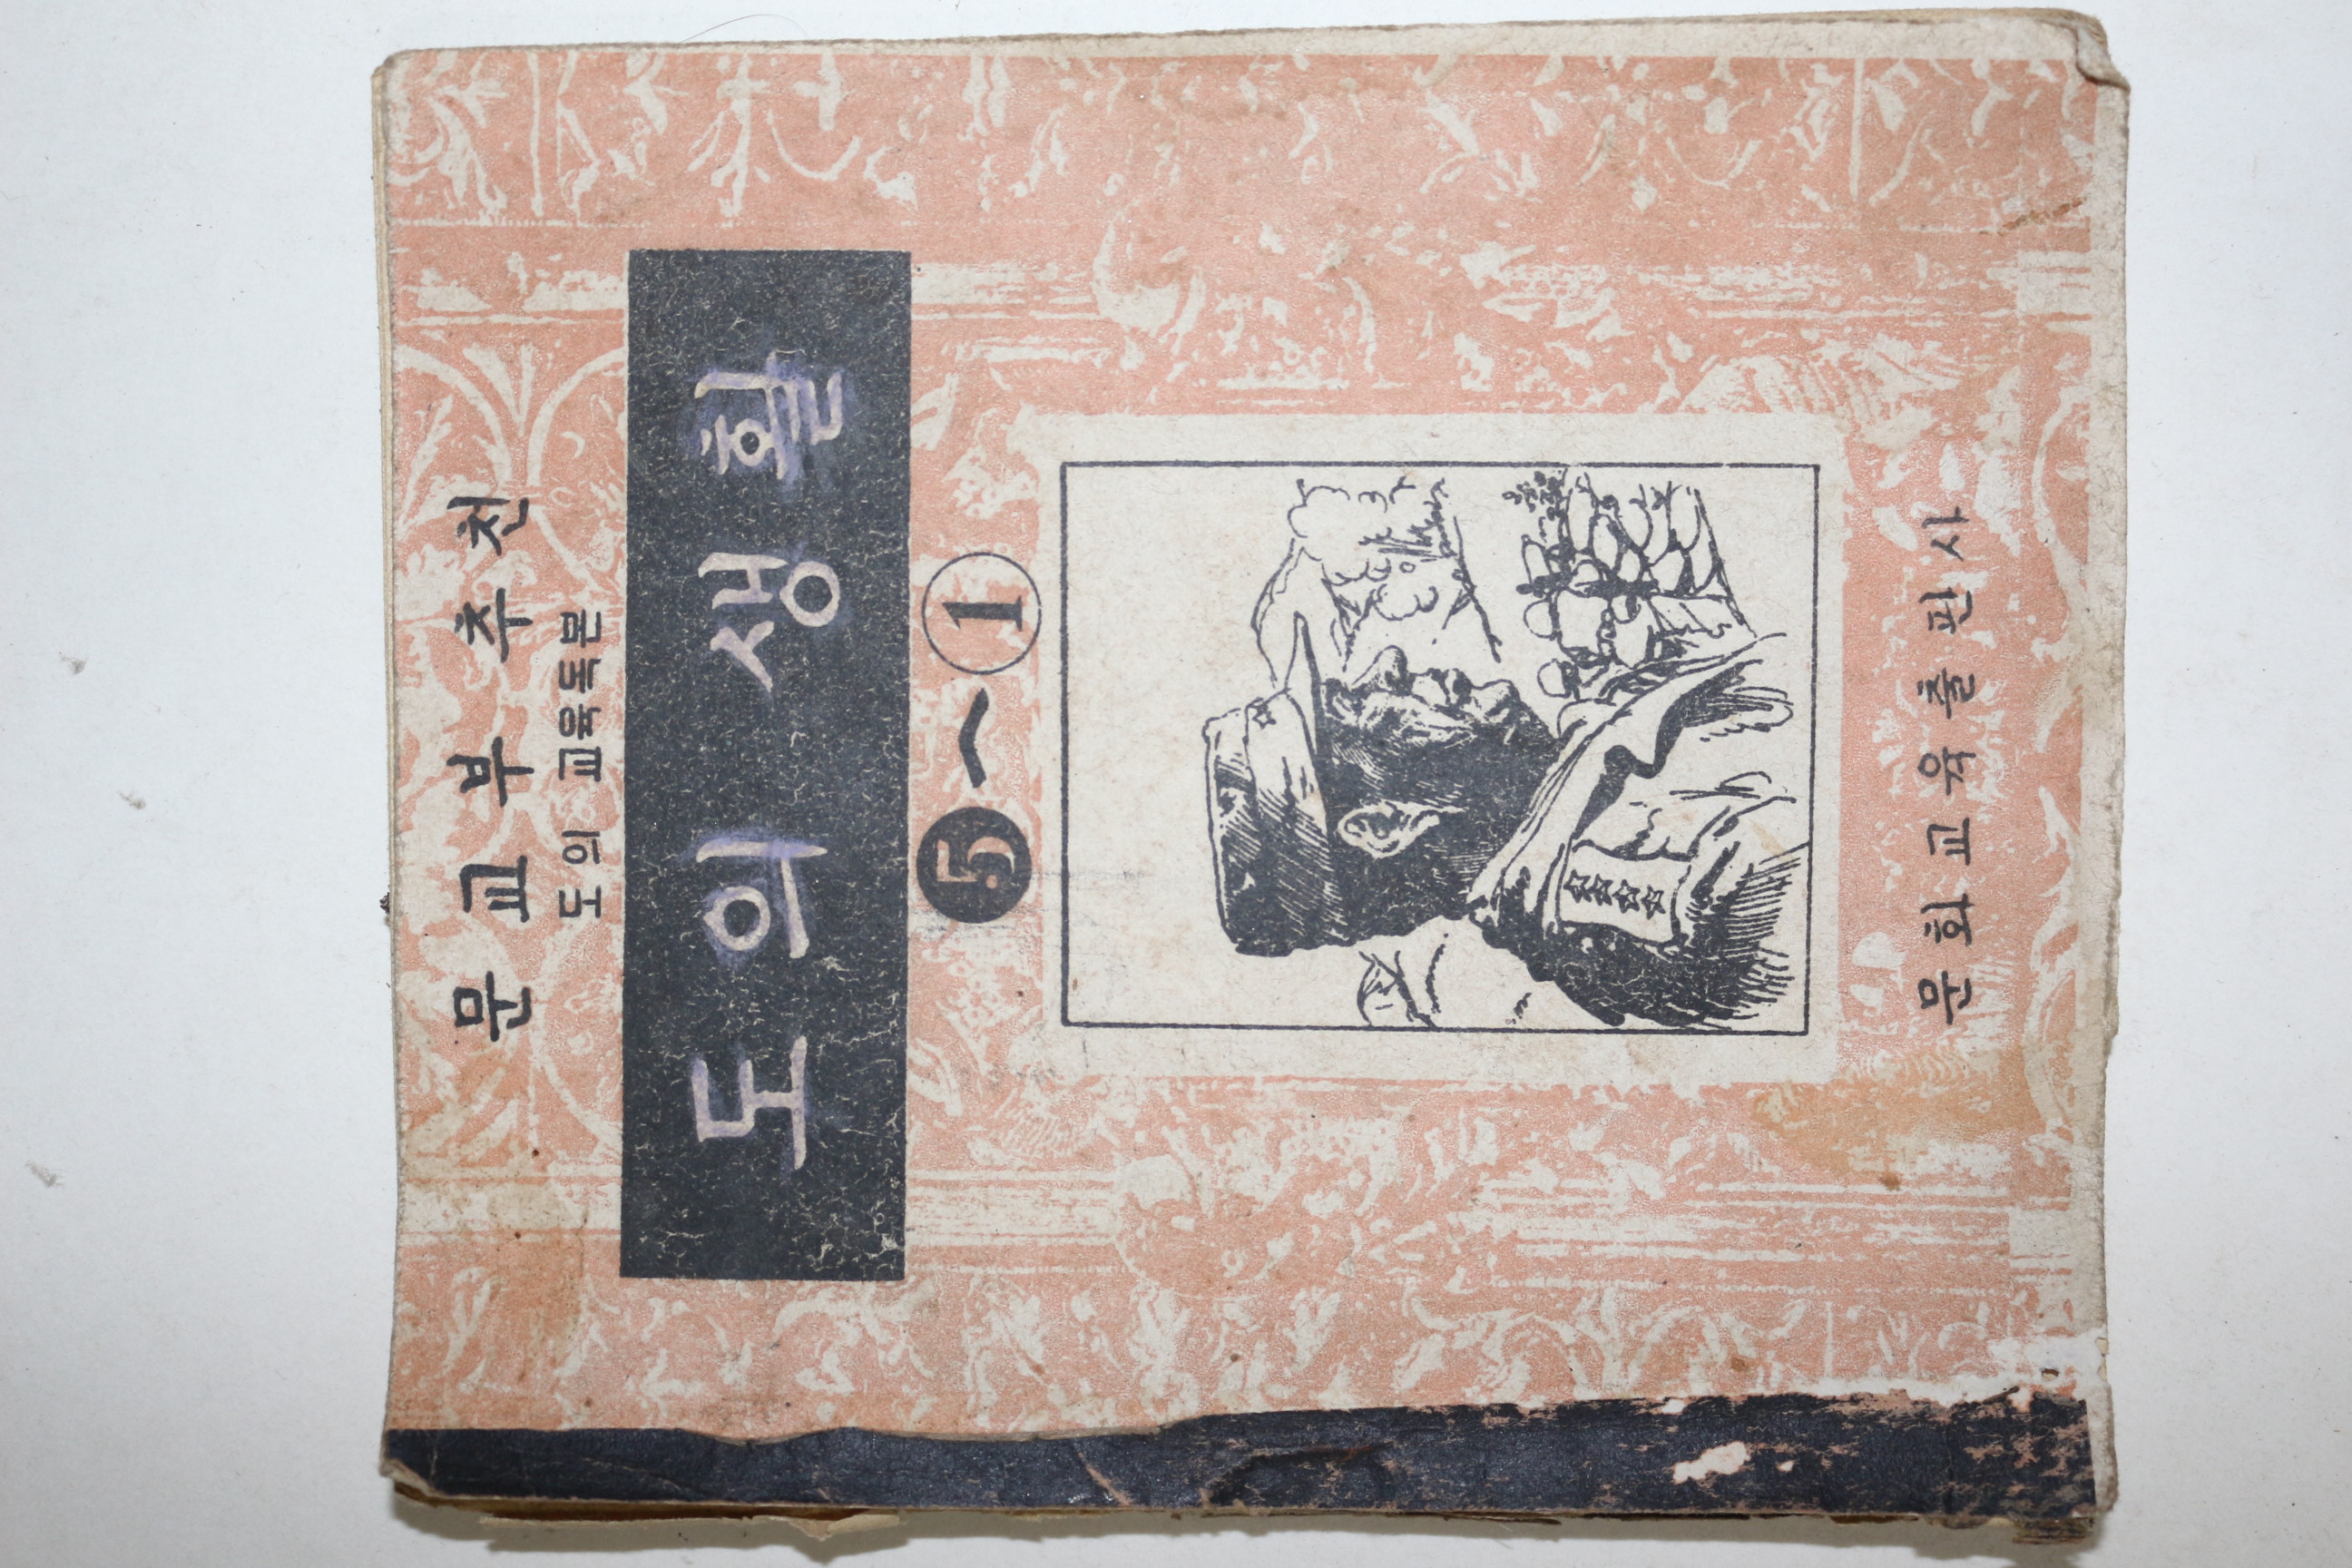 문교부추천
도의 교육독본
도의생활
5~1
문화교육출판사